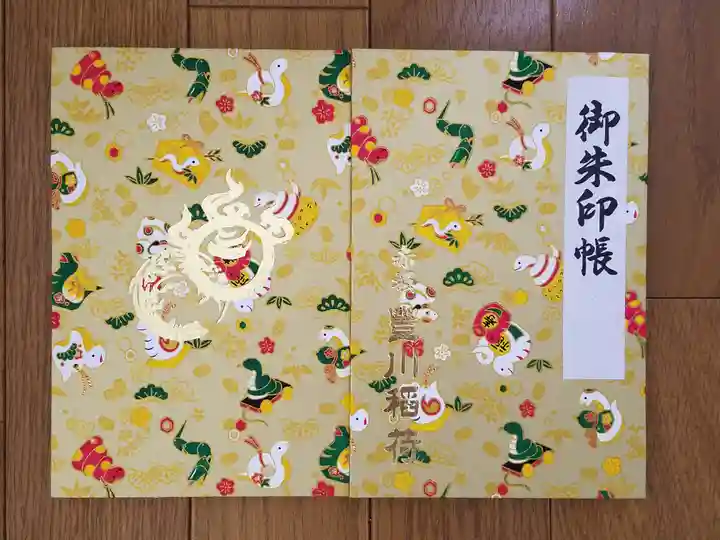 御朱印帳
赤坂豊川稲荷